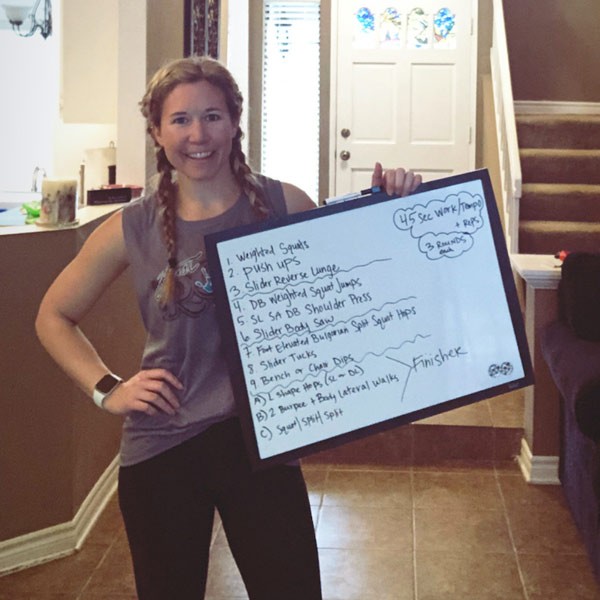 45 Sec Work/Tempo
+ Reps
3 Rounds
1. Weighted Squats
2. Push Ups
3. Slider Reverse Lunge
4. DB Weighted Squat Jumps
5. SL SA DB Shoulder Press
6. Slider Body Saw
7. Foot Elevated Bulgarian Split Squat Hops
8. Slider Tucks
9. Bench or Chair Dips
A) L Shape Hops (SL or DL)
B) 2 Burpee + Body Lateral Walks
C) Squat/Split/Split
Finisher